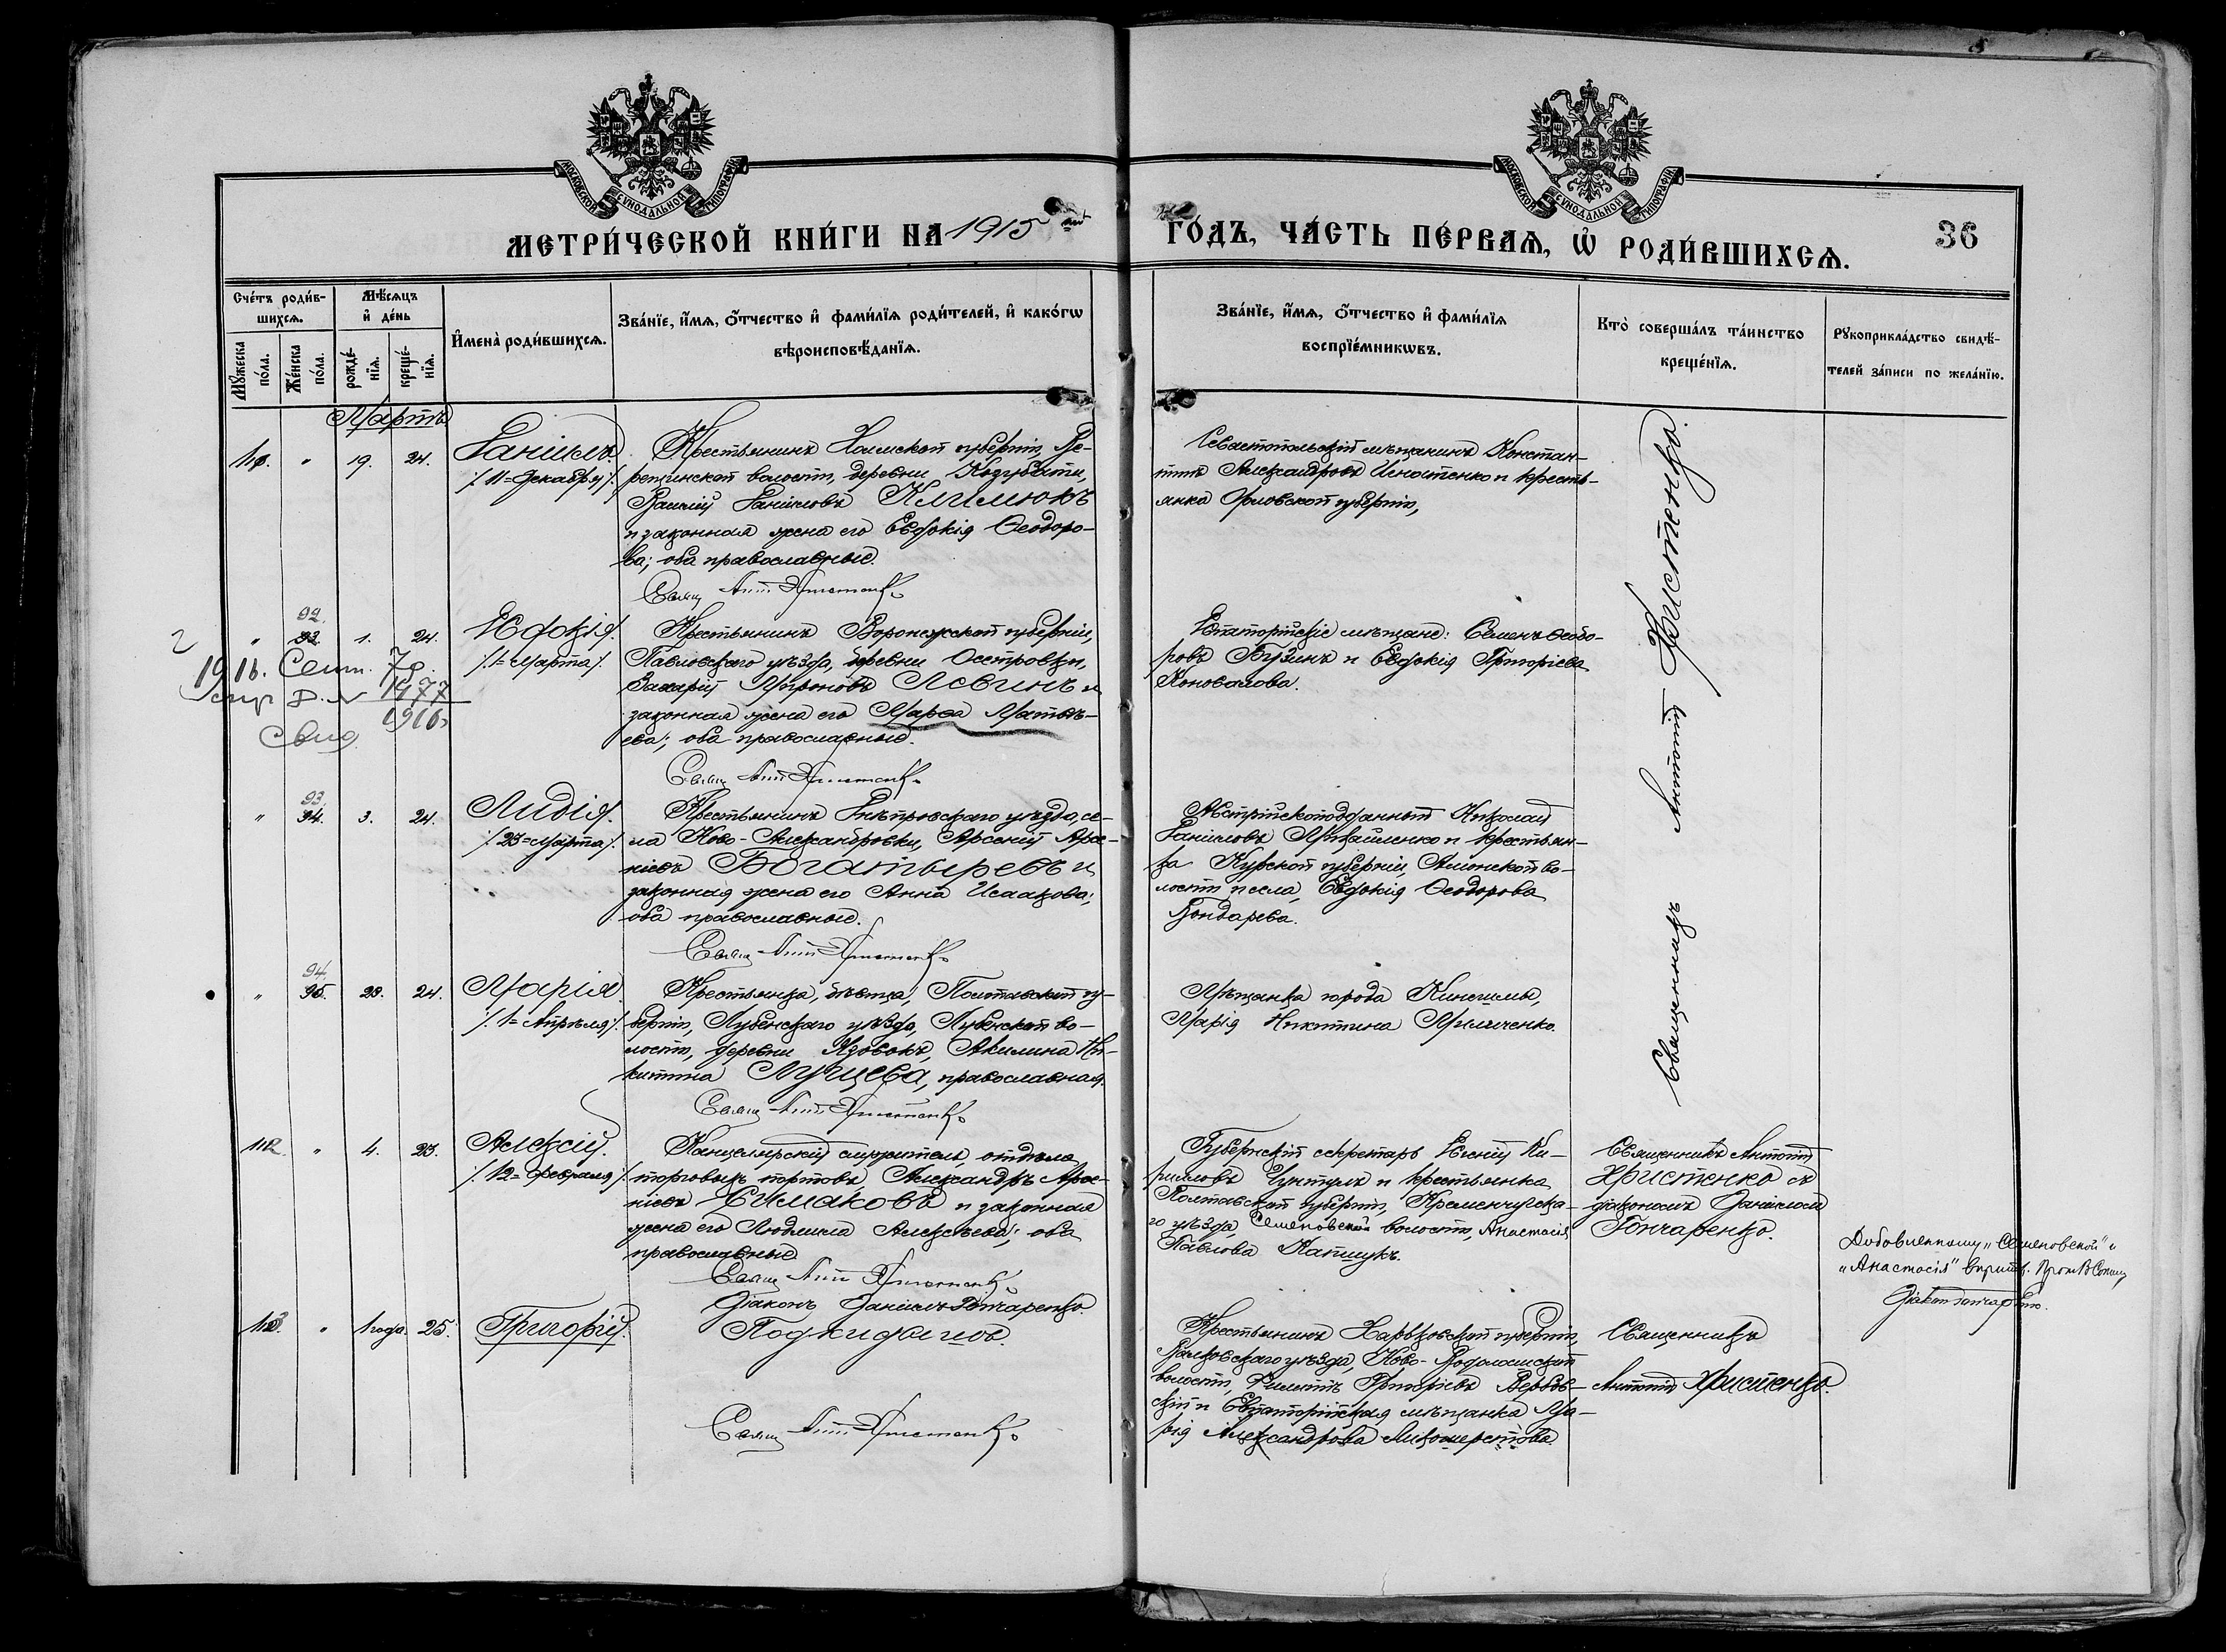 МОСКОВСКОЙ СѴНОДАЛЬНОЙ ТИПОГРАФІИ
МОСКОВСКОЙ СѴНОДАЛЬНОЙ ТИПОГРАФІИ
МЕТРИ́ЧЕСКОЙ КНИ́ГИ НА 1915 ый
ГО́ДЪ, ЧА́СТЬ ПЕ́РВАЯ, Ѡ РОДИ́ВШИХСЯ.
36
Сче́тъ роди́в-
шихся.
Мѣ́сяцъ
и де́нь
Мꙋ́жеска по́ла.
Же́нска по́ла.
рожде́-
нїя.
креще́-
нїя.
Имена̀ роди́вшихся.
Зва́нїе, и́мя, о́тчество и фами́лїя роди́телей, и како́гѡ
вѣроисповѣ́данїя.
Зва́нїе, и́мя, о́тчество и фами́лїя
воспрїе́мникѡвъ.
Кто̀ соверша́лъ та́инство
креще́нїя.
Рꙋкоприкла́дство свидѣ́-
телей за́писи по жела́нїю.
Мартъ
" 19. 24. Даніилъ.
/11=Декабря/.
Крестьянинъ Холмской губерніи,
волости, деревни
Даніиловъ Климюкъ
и законная жена его Евдокія Ѳеодоро-
ва; оба православные.
Свящ Ант Христенко
Севастопольскій мѣщанинъ Констан-
тинъ Александровъ Игнатенко и кресть-
янка Орловской губерніи,
92.
" 93. 1. 24. Евдокія.
/1=Марта/.
Крестьянинъ Воронежской губерніи,
Павловскаго уѣзда, деревни Осетровки,
Захарій Мироновъ Левинъ и
законная жена его Марѳа Матвѣ-
ева; оба православные.
Свящ Ант Христенко
Евпаторійскіе мѣщане: Семенъ Ѳеодо-
ровъ Бузинъ и Евдокія Григоріева
Коновалова.
2
1916. Сент. 7 д.
1477
1916
Свид
93.
" 94. 3. 24. Лидія.
/23=Марта/.
Крестьянинъ Днѣпровскаго уѣзда, се-
ла Ново-Александровки, Арсеній Арсе-
ніевъ Богатыревъ и
законная жена его Анна Исаакова;
оба православные.
Свящ Ант Христенко
Австрійскоподданный Николай
Даніиловъ и крестьян-
ка Курской губерніи, во-
лости и села, Евдокія Ѳеодорова
Бондарева.
Священникъ Антоній Христенко.
94.
" 95. 28. 24. Марія.
/1=Апрѣля/.
Крестьянка, дѣвица, Полтавской гу-
берніи, Лубенскаго уѣзда, Лубенской во-
лости, деревни Акилина Ни-
китина православная.
Свящ Ант Христенко
Мѣщанка города
Марія Никитина
112 " 4. 25. Алексій.
/12=Февраля/.
Канцелярскій служитель отдѣла
торговыхъ портовъ, Александръ Арсе-
ніевъ Симаковъ и законная
жена его Людмила Алексѣева; оба
православные
Свящ Ант Христенко
Діаконъ Даніилъ Гончаренко.
Губернскій секретарь Ки-
рилловъ и крестьянка
Полтавской губерніи, Кременчугска-
го уѣзда, Семеновской волости, Анастасія
Павлова Капшукъ.
Священникъ Антоній
Христенко съ
діакономъ Даніиломъ
Гончаренко.
Добавленному "Семеновской" и
"Анастасія"
Діаконъ Гончаренко.
113. " 1 года. 25. Григорій.
Подкидышъ.
Свящ Ант Христенко
Крестьянинъ Харьковской губерніи,
Валковскаго уѣзда, Ново-Водолажской
волости, Филиппъ Григоріевъ Вербов-
скій и Евпаторійская мѣщанка Ма-
рія Александрова
Священникъ
Антоній Христенко.